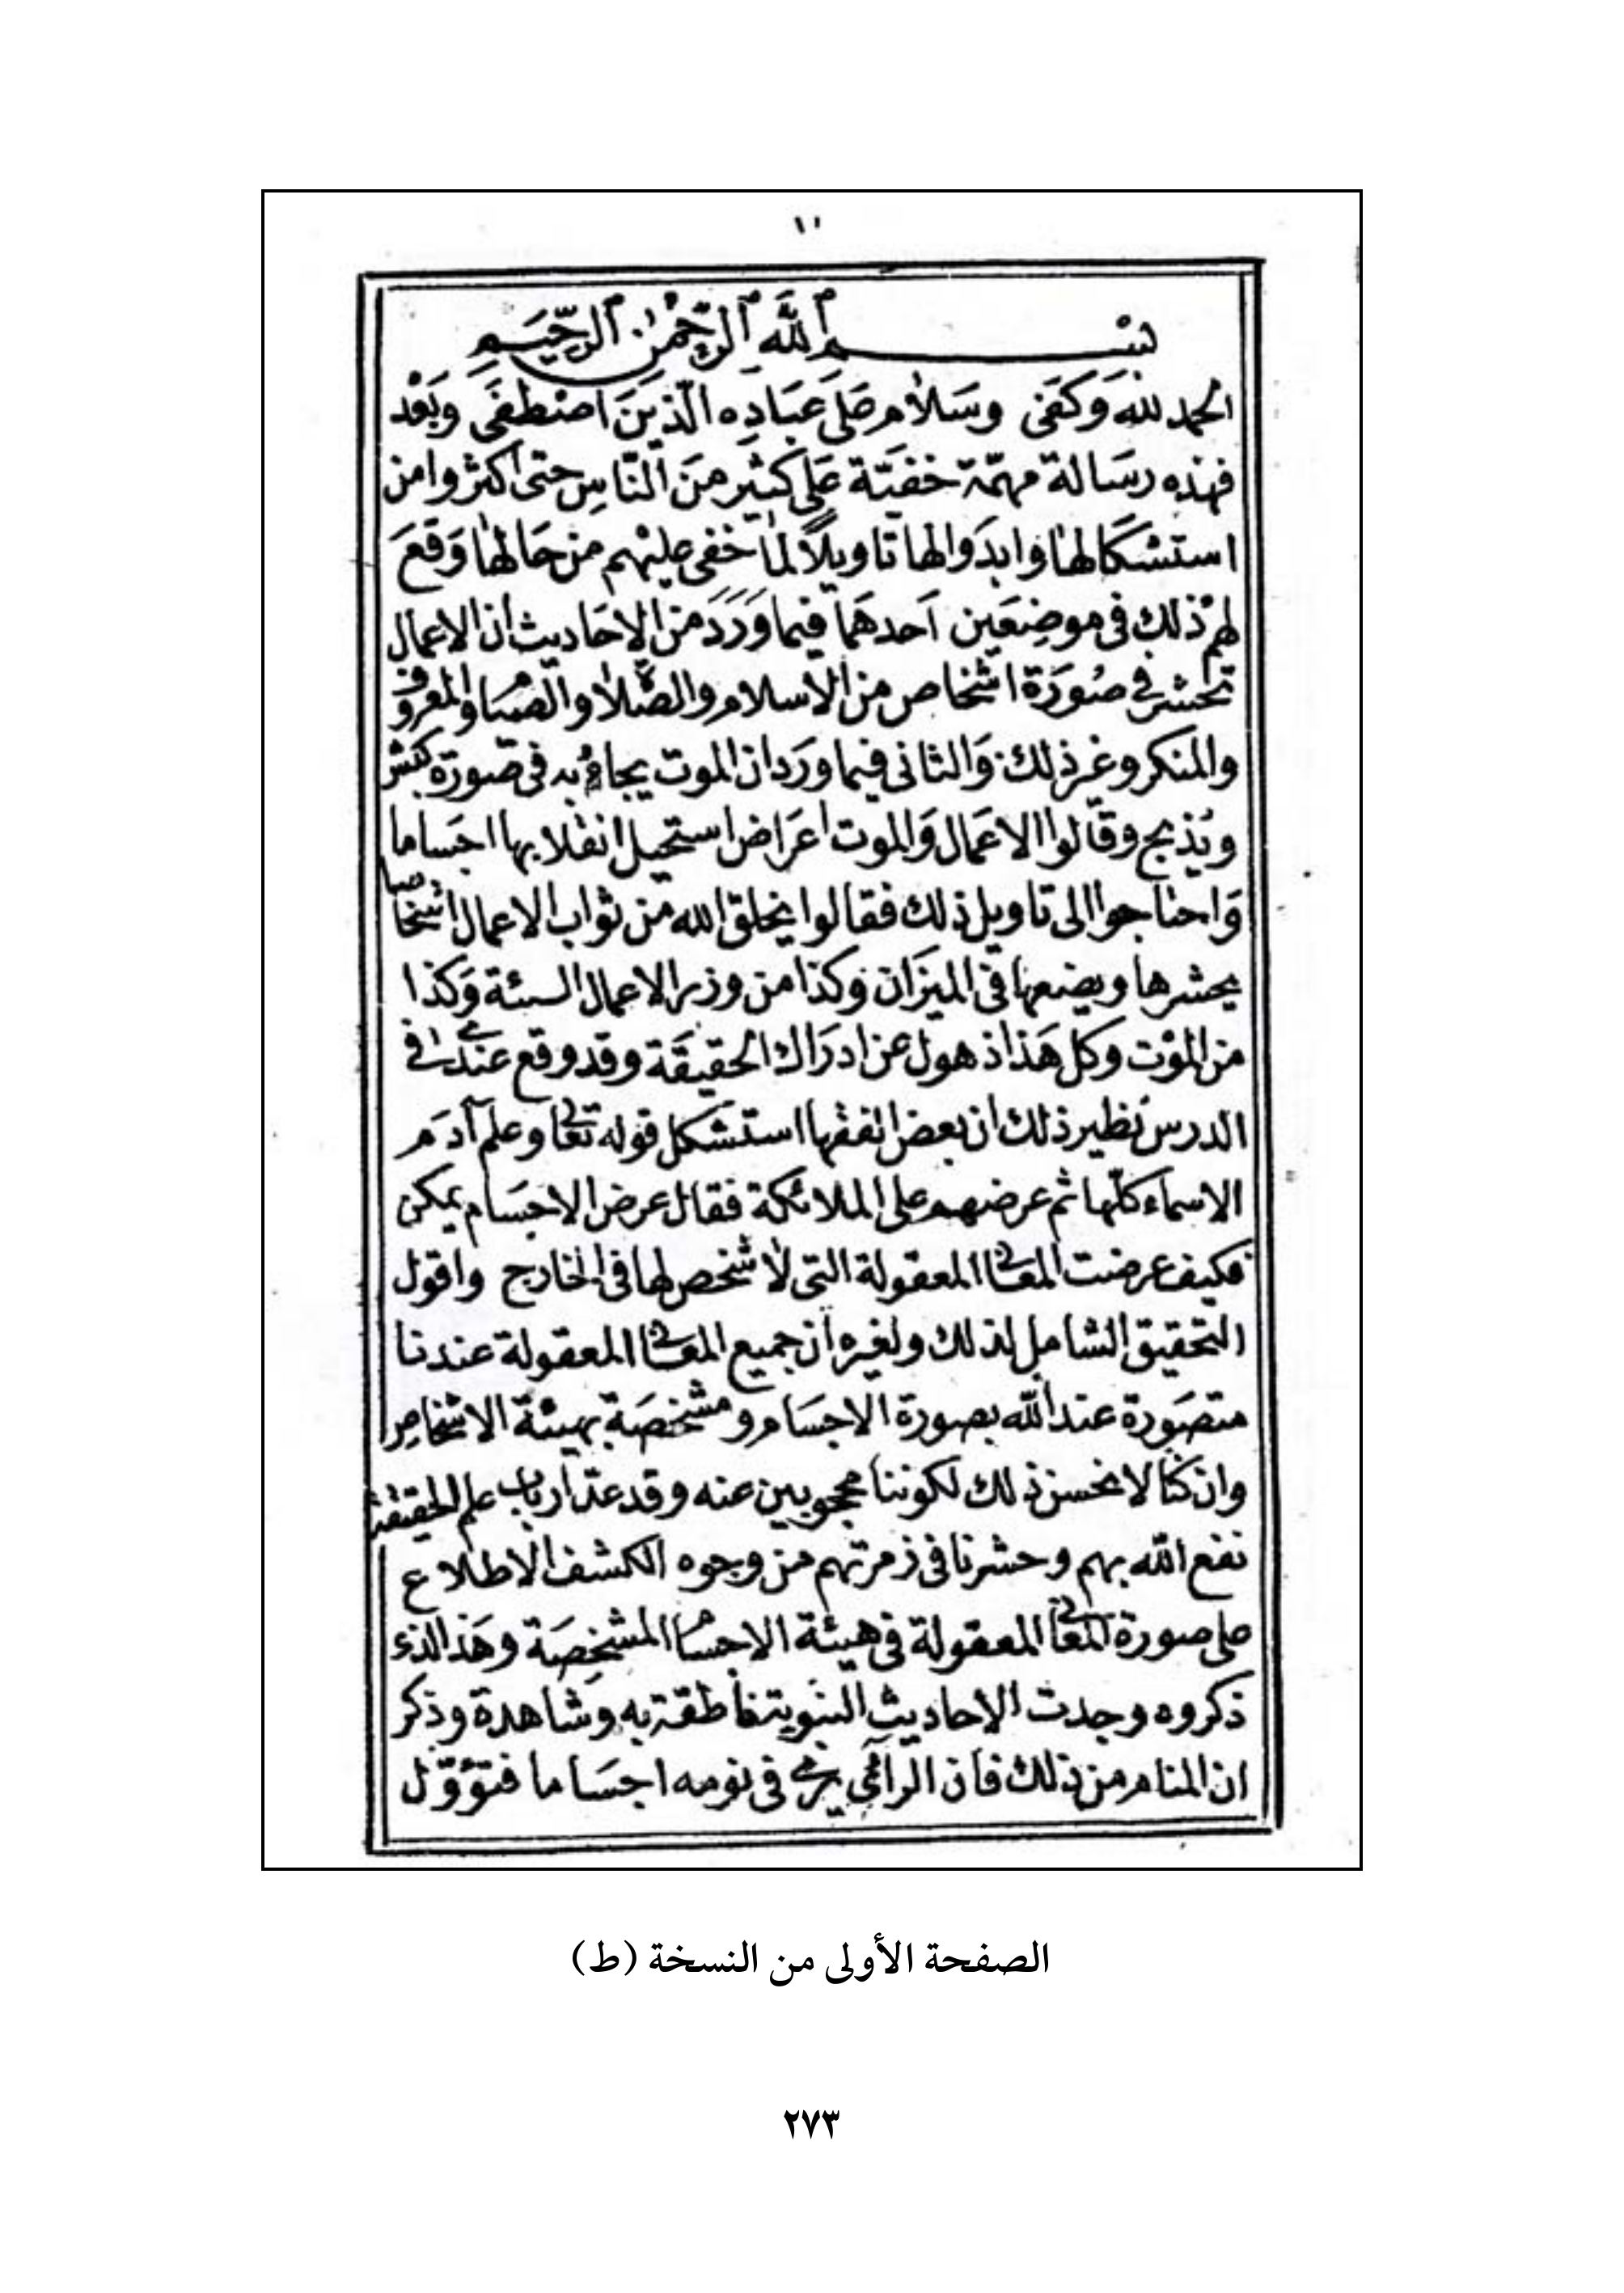 ١١
بسم الله الرحمن الرحيم
الحمد لله وكفى وسلام على عباده الذين اصطفى وبعد
فهذه رسالة مهمّة خفيّة على كثير من النّاس حتى اكثروا من
استشكالها وابدوا لها تاويلاً لما خفى عليهم من حالها وقع
لهم ذلك فى موضعين احدهما فيما ورد من الاحاديث ان الاعمال
تحشر فى صورة اشخاص من الاسلام والصّلاة والصّيام والمعروف
والمنكر وغير ذلك والثانى فيما ورد ان الموت يجاء به فى صورة كبش
ويذبح وقالوا الاعمال والموت اعراض استحيل انقلابها اجساما
واحتاجوا الى تاويل ذلك فقالوا يخلق الله من ثواب الاعمال اشخاصا
يحشرها ويضعها فى الميزان وكذا من وزر الاعمال السيئة وكذا
من الموت وكل هذا ذهول عن ادراك الحقيقة وقد وقع عندى فى
الدرس نظير ذلك ان بعض الفقها استشكل قوله تعالى وعلم آدم
الاسماء كلّها ثم عرضهم على الملائكة فقال عرض الاجسام يمكن
فكيف عرضت المعانى المعقولة التى لا شخص لها فى الخارج واقول
التحقيق الشامل لذلك ولغيره ان جميع المعانى المعقولة عندنا
متصورة عند الله بصورة الاجسام ومشخصة بهيئة الاشخاص
وان كنّا لا نحس ذلك لكوننا محجوبين عنه وقد عدّ ارباب علم الحقيقة
نفع الله بهم وحشرنا فى زمرتهم من وجوه الكشف الاطلاع
على صورة المعانى المعقولة فى هيئة الاجسام المشخصة وهذا الذى
ذكروه وجدت الاحاديث النبوية ناطقة به وشاهدة وذكر
ان المنام من ذلك فان الرائى يرى فى نومه اجساما فتؤوّل
الصفحة الأولى من النسخة (ط)
٢٧٣